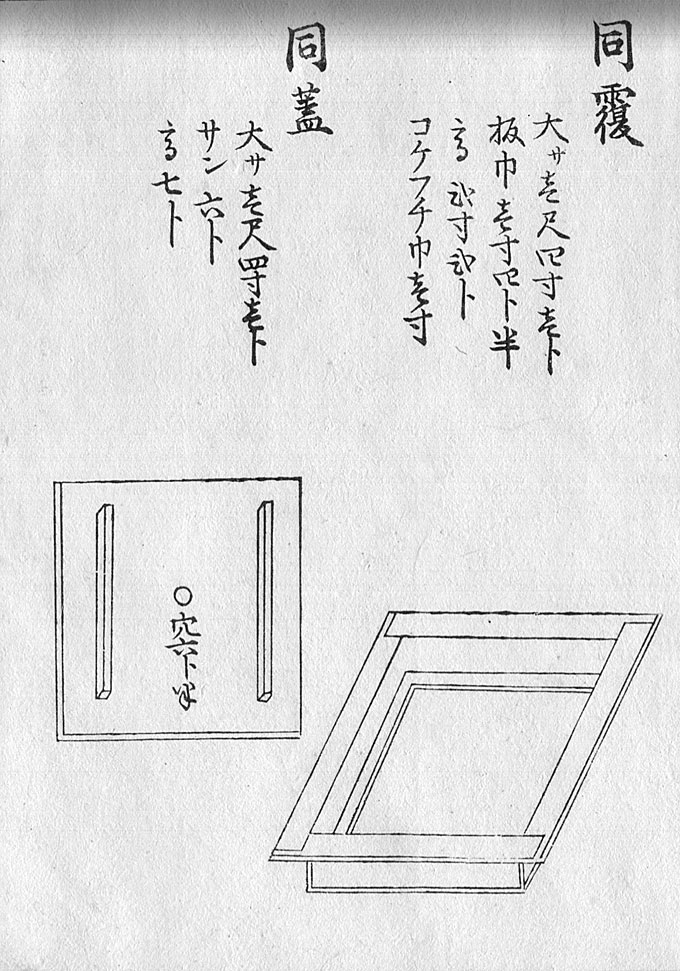 同覆
大サ壱尺四寸壱ト
板巾壱寸四ト半
高弐寸弐ト
コケフチ巾壱寸
同蓋
大サ壱尺四寸壱ト
サン六ト
高七ト
穴六ト半